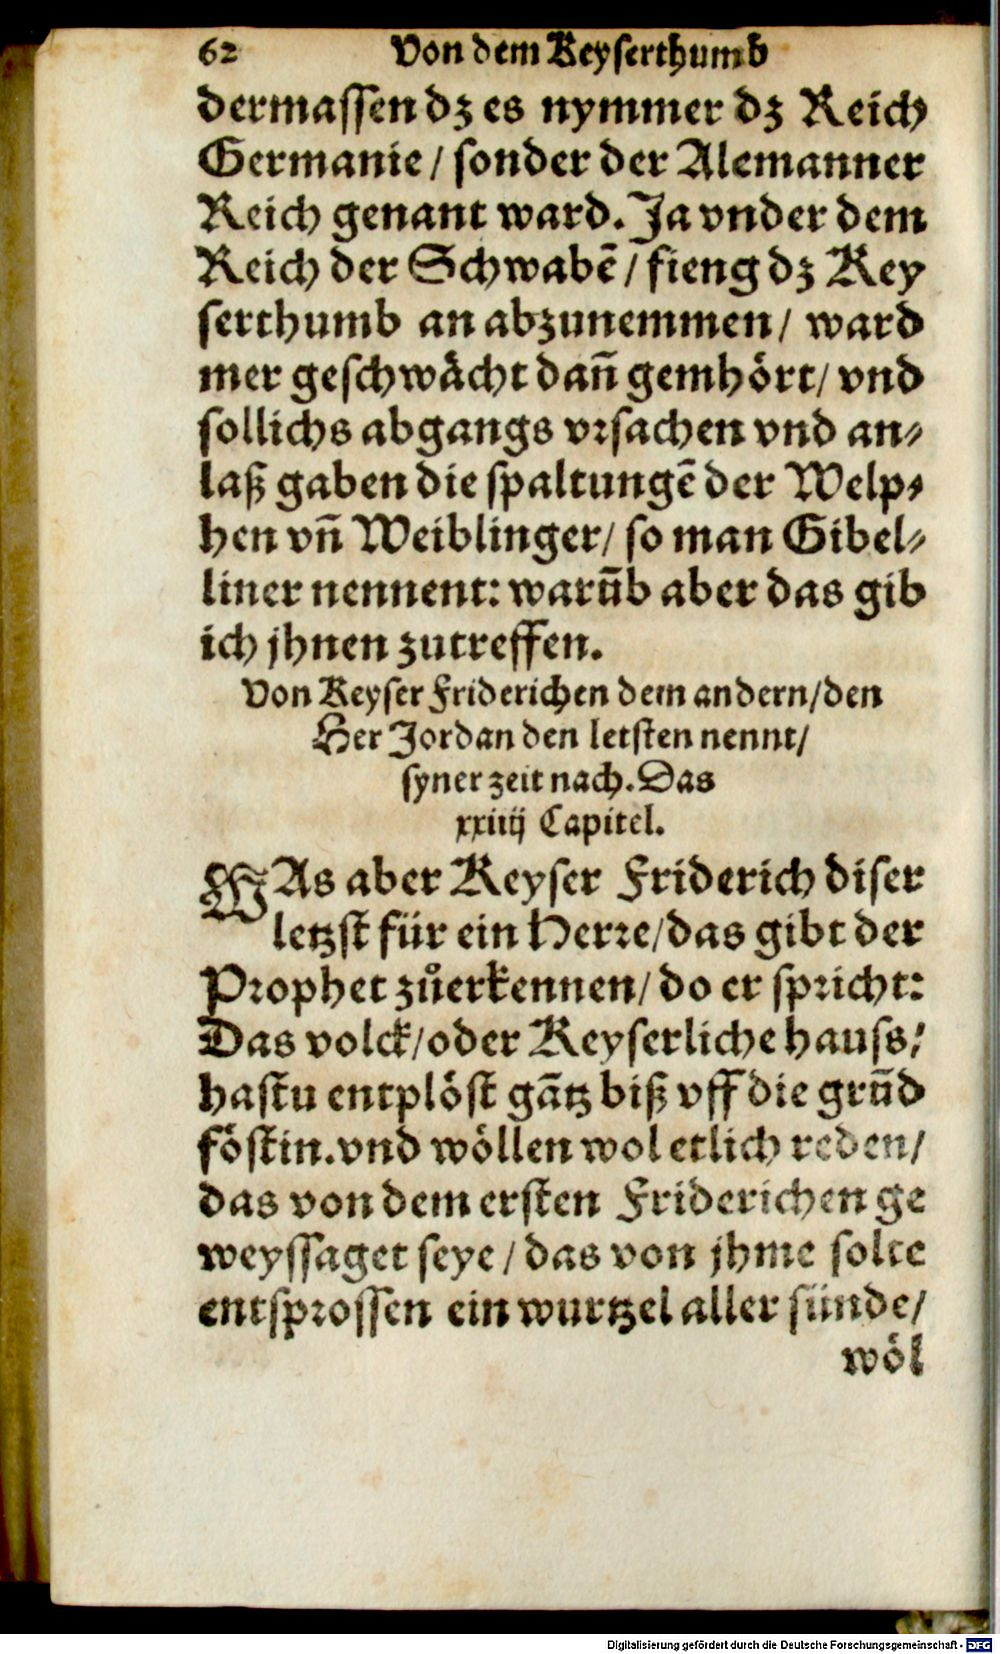 62 Von dem Keyserthumb
dermassen dz es nymmer dz Reich
Germanie / sonder der Alemanner
Reich genant ward. Ja vnder dem
Reich der Schwabē / fieng dz Key
serthumb an abzunemmen / ward
mer geschwächt dañ gemhört / vnd
sollichs abgangs vrsachen vnd an⸗
laß gaben die spaltungē der Welp⸗
hen vñ Weiblinger / so man Gibel⸗
liner nennent: warūb aber das gib
ich jhnen zutreffen.
Von Keyser Friderichen dem andern / den
Her Jordan den letsten nennt /
syner zeit nach. Das
xxiiij Capitel.
WAs aber Keyser Friderich diser
letzst für ein Herre / das gibt der
Prophet zůerkennen / do er spricht:
Das volck / oder Keyserliche hauss /
hastu entplöst gātz biß vff die grūd
föstin. vnd wöllen wol etlich reden /
das von dem ersten Friderichen ge
weyssaget seye / das von jhme solte
entsprossen ein wurtzel aller sünde /
wöl
Digitalisierung gefördert durch die Deutsche Forschungsgemeinschaft - DFG